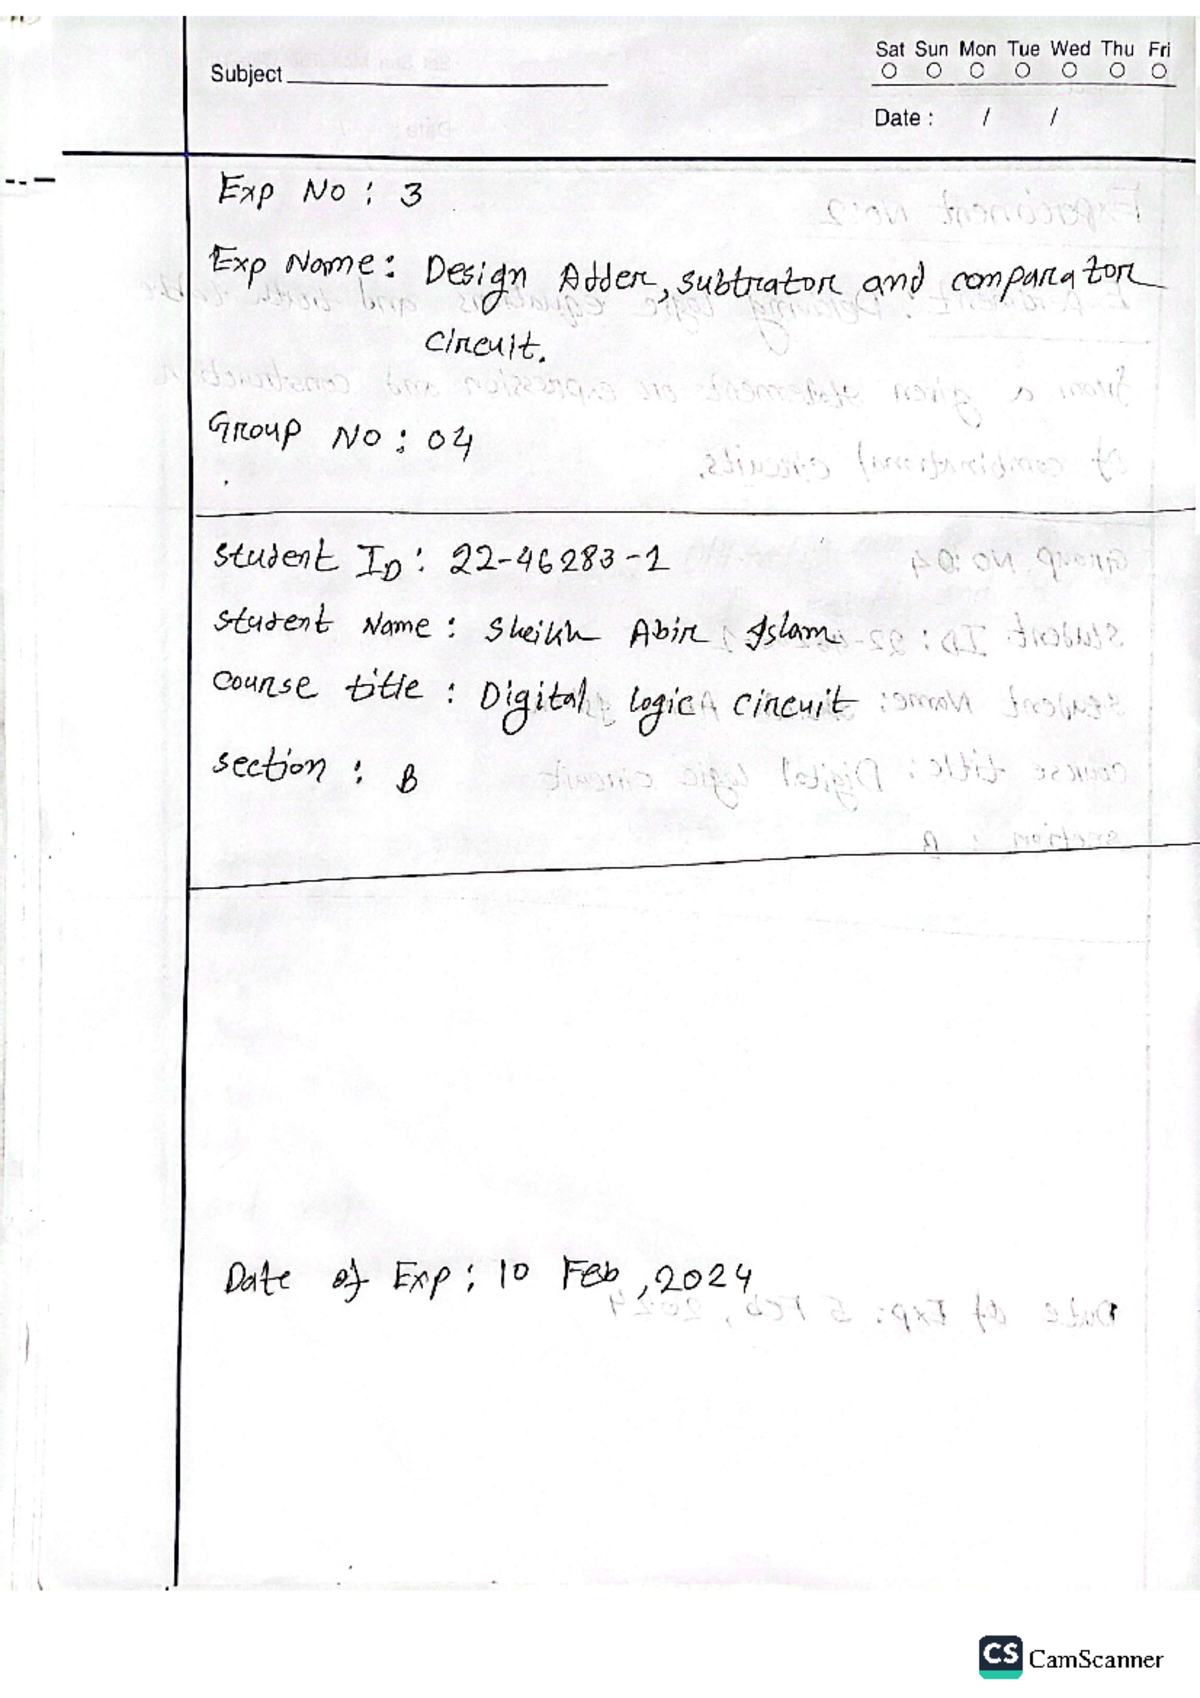 Sat Sun Mon Tue Wed Thu Fri
Subject
Date : / /
Exp No : 3
Exp Name : Design Adder, subtrator and comparator
circuit.
Group No : 04
Student ID : 22-46283-1
Student Name : Sheikh Abir Islam
course title : Digital logic circuit
section : B
Date of Exp : 10 Feb, 2024
CS CamScanner